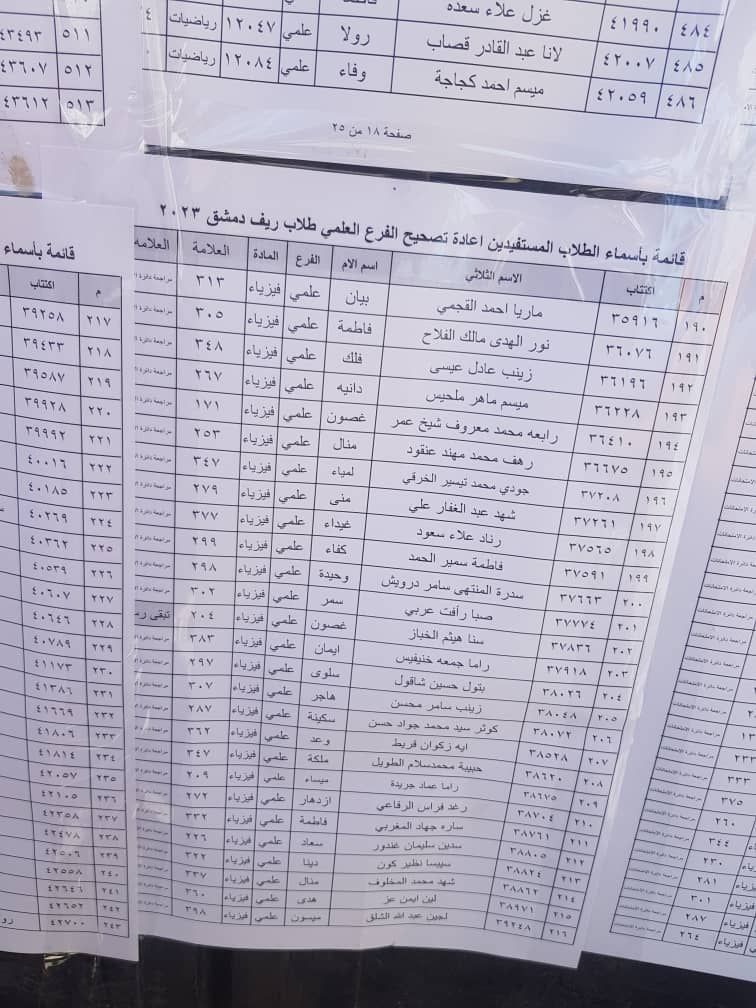 ٤٨٤ ٤١٩٩٠ غزل علاء سعده
٤٨٥ ٤٢٠٠٧ لانا عبد القادر قصاب رولا علمي رياضيات ١٢٠٤٧
٤٨٦ ٤٢٠٥٩ ميسم احمد كجاجة وفاء علمي رياضيات ١٢٠٨٤
صفحة ١٨ من ٢٥
٥١١ ٤٣٤٩٣
٥١٢ ٤٣٦٠٧
٥١٣ ٤٣٦١٢
قائمة بأسماء الطلاب المستفيدين اعادة تصحيح الفرع العلمي طلاب ريف دمشق ٢٠٢٣
م اكتتاب الاسم الثلاثي اسم الام الفرع المادة العلامة العلامة
١٩٠ ٣٥٩١٦ ماريا احمد القجمي بيان علمي فيزياء ٣١٣ مراجعة دائرة
١٩١ ٣٦٠٧٦ نور الهدى مالك الفلاح فاطمة علمي فيزياء ٣٠٥ مراجعة دائرة
١٩٢ ٣٦١٩٦ زينب عادل عيسى فلك علمي فيزياء ٣٤٨ مراجعة دائرة
١٩٣ ٣٦٢٢٨ ميسم ماهر ملحيس دانيه علمي فيزياء ٢٦٧ مراجعة دائرة
١٩٤ ٣٦٤١٠ رابعه محمد معروف شيخ عمر غصون علمي فيزياء ١٧١ مراجعة دائرة
١٩٥ ٣٦٦٧٥ رهف محمد مهند عنقود منال علمي فيزياء ٢٥٣ مراجعة دائرة
١٩٦ ٣٧٢٠٨ جودي محمد تيسير الخرقي لمياء علمي فيزياء ٣٤٧ مراجعة دائرة
١٩٧ ٣٧٢٦١ شهد عبد الغفار علي منى علمي فيزياء ٢٧٩ مراجعة دائرة
١٩٨ ٣٧٥٦٥ رناد علاء سعود غيداء علمي فيزياء ٣٧٧ مراجعة دائرة
١٩٩ ٣٧٥٩١ فاطمة سمير الحمد كفاء علمي فيزياء ٢٩٩ مراجعة دائرة
٢٠٠ ٣٧٦٦٣ سدرة المنتهى سامر درويش وحيدة علمي فيزياء ٢٩٨ مراجعة دائرة
٢٠١ ٣٧٧٧٤ صبا رأفت عربي سمر علمي فيزياء ٣٠٢ مراجعة دائرة
٢٠٢ ٣٧٨٣٦ سنا هيثم الخباز غصون علمي فيزياء ٢٠٤ تبقى
٢٠٣ ٣٧٩١٨ راما جمعه خنيفيس ايمان علمي فيزياء ٣٨٣ مراجعة دائرة
٢٠٤ ٣٨٠٢٦ بتول حسين شاقول سلوى علمي فيزياء ٢٩٧ مراجعة دائرة
٢٠٥ ٣٨٠٤٨ زينب سامر محسن هاجر علمي فيزياء ٣٠٧ مراجعة دائرة
٢٠٦ ٣٨٠٧٢ كوثر سيد محمد جواد حسن سكينة علمي فيزياء ٢٨٧ مراجعة دائرة
٢٠٧ ٣٨٥٢٨ ايه زكوان قريط وعد علمي فيزياء ٣٦٢ مراجعة دائرة
٢٠٨ ٣٨٦٢٠ حبيبة محمدسلام الطويل ملكة علمي فيزياء ٣٤٧ مراجعة دائرة
٢٠٩ ٣٨٦٧٥ راما عماد جريدة ميساء علمي فيزياء ٢٠٩ مراجعة دائرة
٢١٠ ٣٨٧٠٤ رغد فراس الرفاعي ازدهار علمي فيزياء ٢٧٢ مراجعة دائرة
٢١١ ٣٨٧٦١ ساره جهاد المغربي فاطمة علمي فيزياء ٣٣٢ مراجعة دائرة
٢١٢ ٣٨٨٠٥ سدين سليمان غندور سعاد علمي فيزياء ٢٢٦ مراجعة دائرة
٢١٣ ٣٨٨٢٤ سيبسا نظير كون دينا علمي فيزياء ٣٢٢ مراجعة دائرة
٢١٤ ٣٨٨٦٢ شهد محمد المخلوف منال علمي فيزياء ٣٣٧ مراجعة دائرة
٢١٥ ٣٨٩٧١ لين ايمن عز هدى علمي فيزياء ٣٦٠ مراجعة دائرة
٢١٦ ٣٩٢٤٨ لجين عبد الله الشلق ميسون علمي فيزياء ٣٩٨ مراجعة دائرة
قائمة بأسماء
م اكتتاب
٢١٧ ٣٩٢٥٨
٢١٨ ٣٩٤٣٣
٢١٩ ٣٩٥٨٧
٢٢٠ ٣٩٩٢٨
٢٢١ ٣٩٩٩٢
٢٢٢ ٤٠٠١٦
٢٢٣ ٤٠١٨٥
٢٢٤ ٤٠٢٦٩
٢٢٥ ٤٠٣٦٢
٢٢٦ ٤٠٥٣٩
٢٢٧ ٤٠٦٠٧
٢٢٨ ٤٠٦٤٦
٢٢٩ ٤٠٧٨٩
٢٣٠ ٤١١٧٣
٢٣١ ٤١٣٨٦
٢٣٢ ٤١٦٦٩
٢٣٣ ٤١٨٠٦
٢٣٤ ٤١٨١٤
٢٣٥ ٤٢٠٥٧
٢٣٦ ٤٢١٠٥
٢٣٧ ٤٢٣٥٨
٢٣٨ ٤٢٤٧٨
٢٣٩ ٤٢٥٠٦
٢٤٠ ٤٢٥٥٨
٢٤١ ٤٢٦٤٦
٢٤٢ ٤٢٦٥٢
٢٤٣ ٤٢٧٠٠
٢٣٣ مراجعة دائرة الامتحانات
٣٣٣ مراجعة دائرة الامتحانات
٣٧٥ مراجعة دائرة الامتحانات
٢٦٠ مراجعة دائرة الامتحانات
٣٤٤ مراجعة دائرة الامتحانات
٢٣٠ مراجعة دائرة الامتحانات
٢٨١ مراجعة دائرة الامتحانات
٣٠١ مراجعة دائرة الامتحانات
فيزياء ٢٨٧ مراجعة دائرة الامتحانات
فيزياء ٢٦٤ مراجعة دائرة الامتحانات